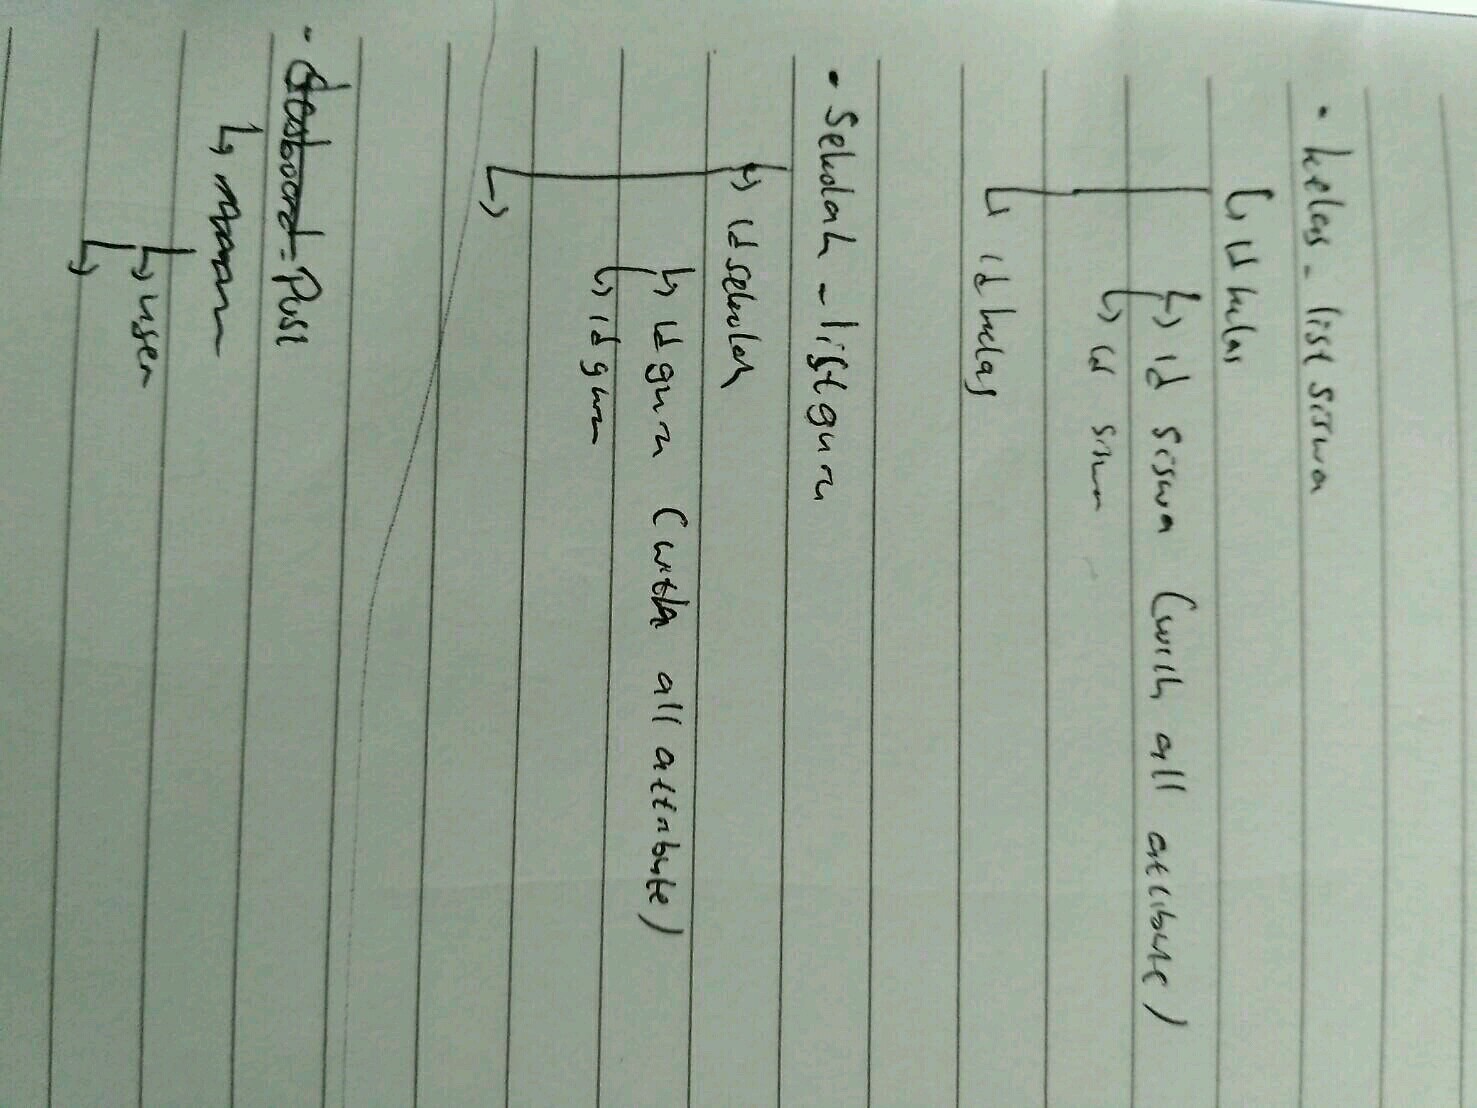 • kelas - list siswa
↳ id kelas
↳ id siswa (with all attribute)
↳ id siswa
↳ id kelas
• Sekolah - list guru
↳ id sekolah
↳ id guru (with all attribute)
↳ id guru
↳
- dasboard -
↳
↳ user
↳